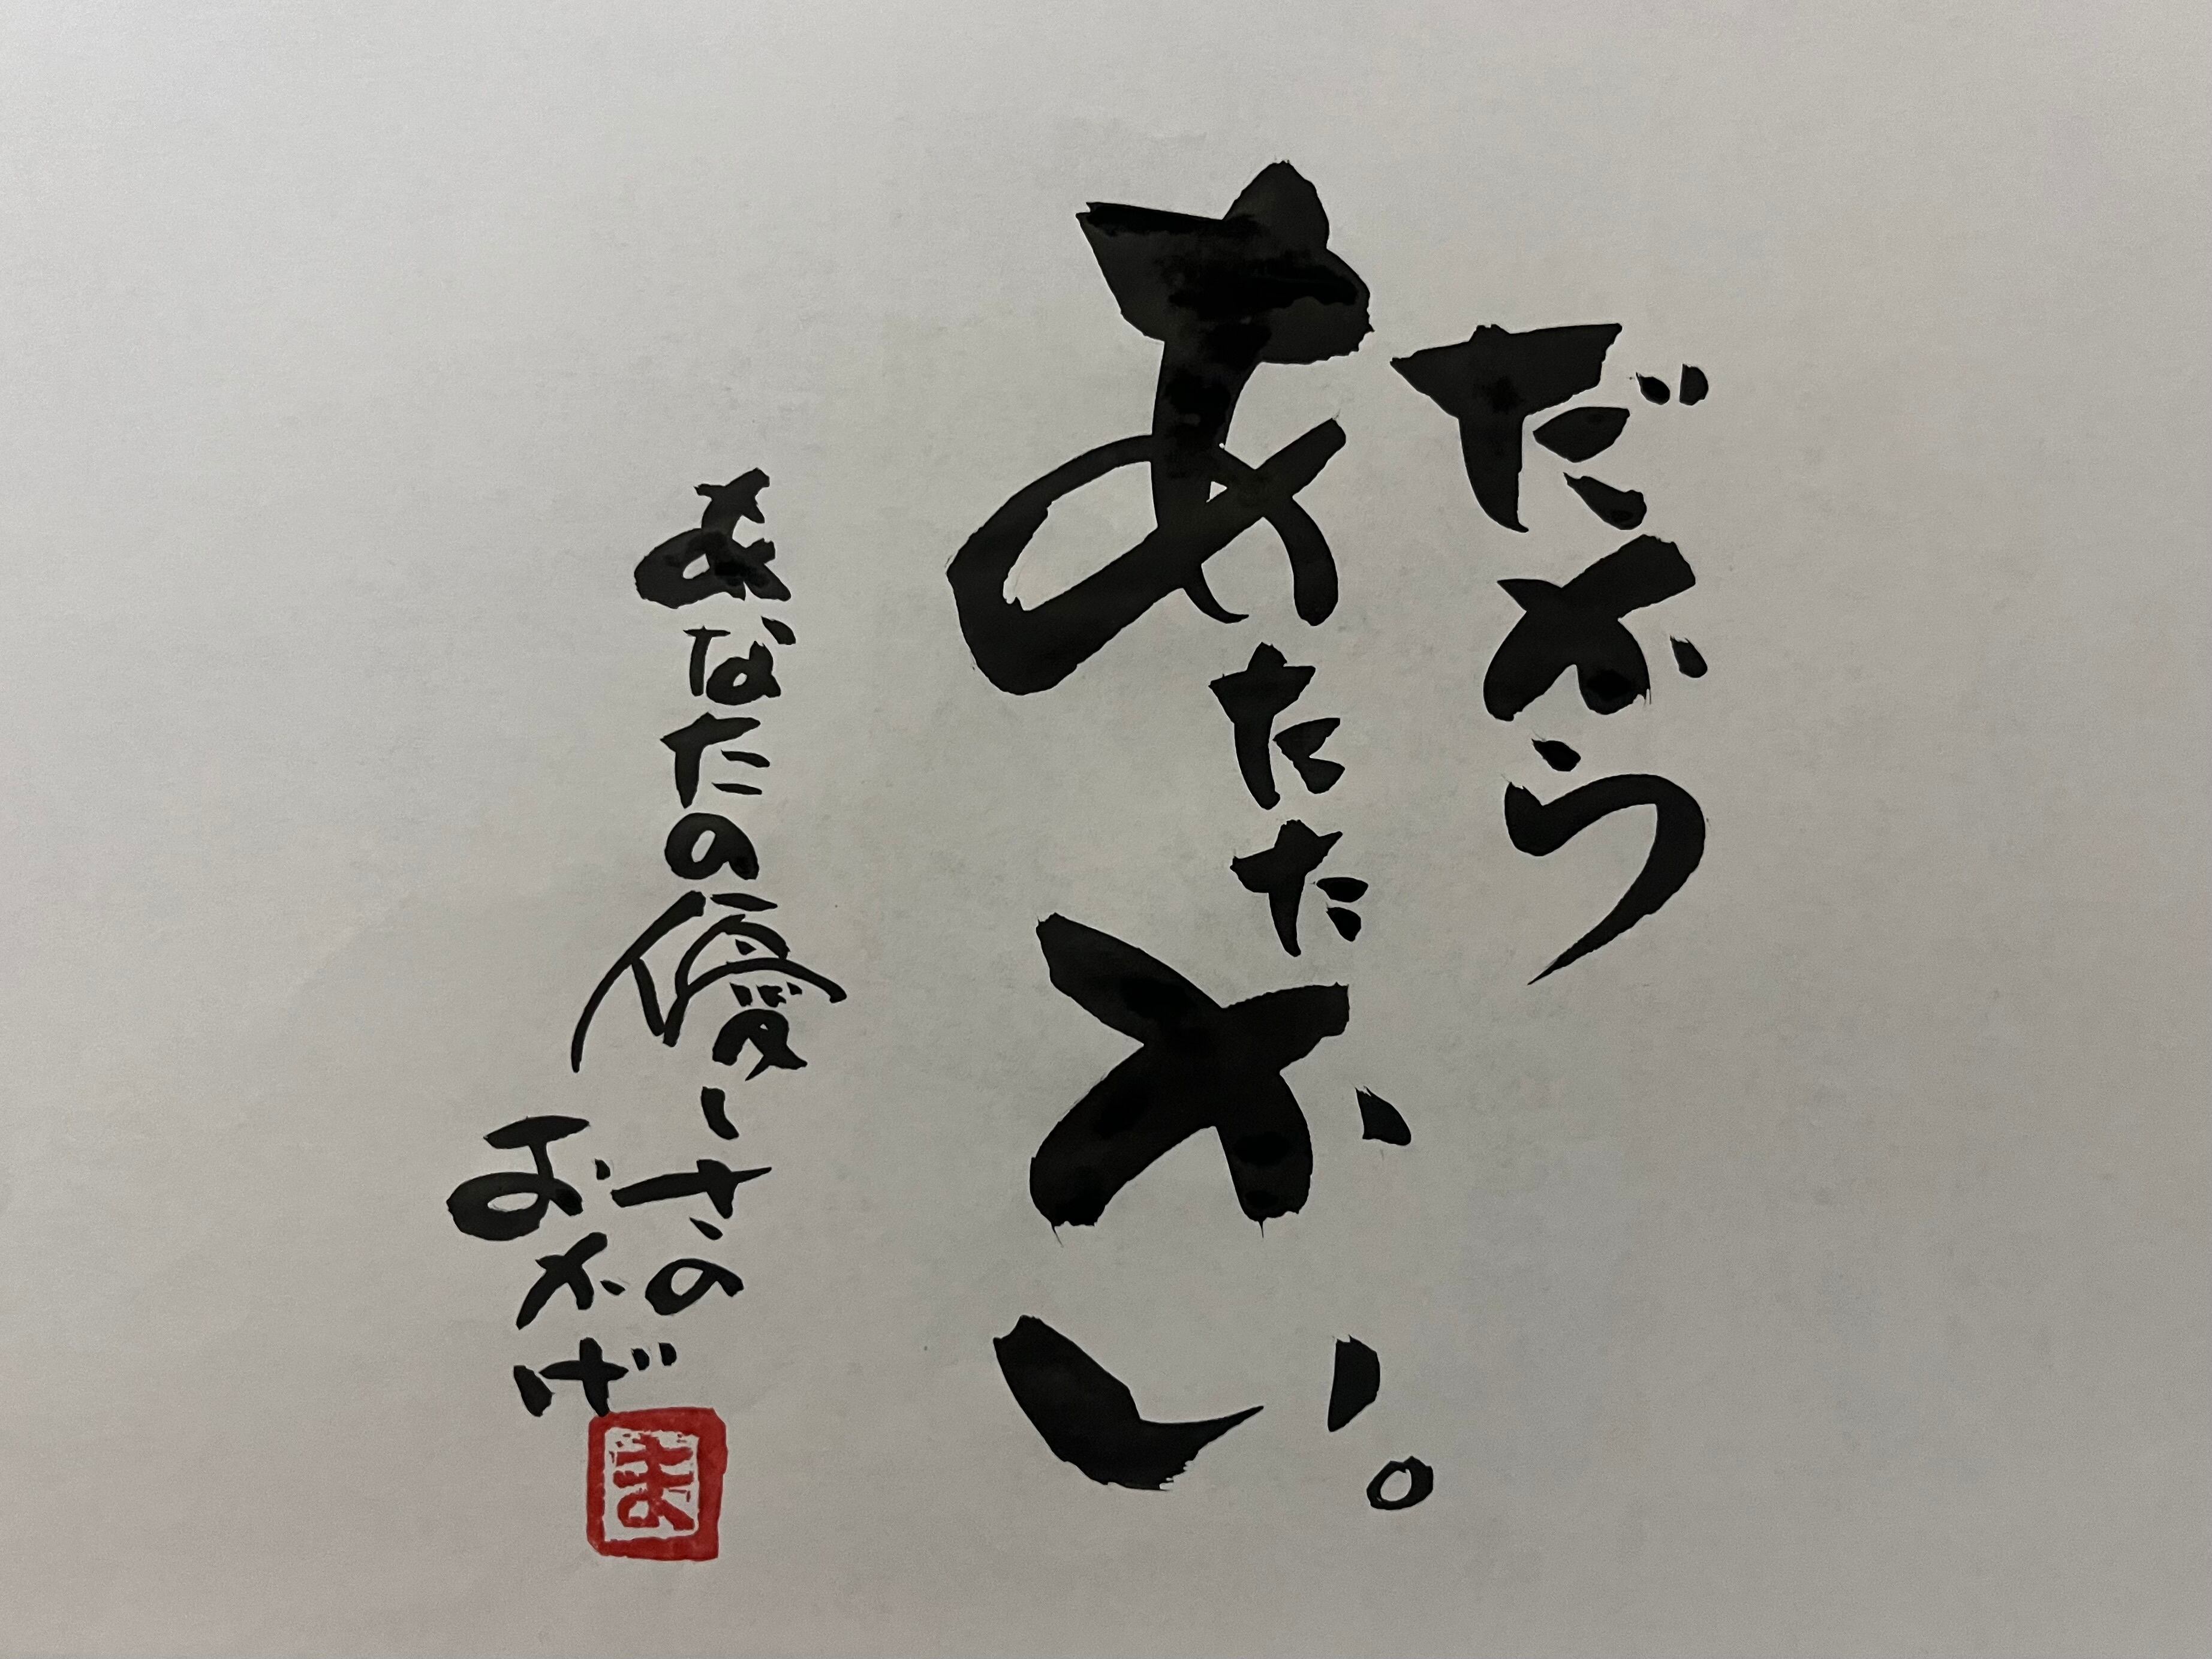 だから
あたたかい。
あなたの優しさの
おかげ
ま